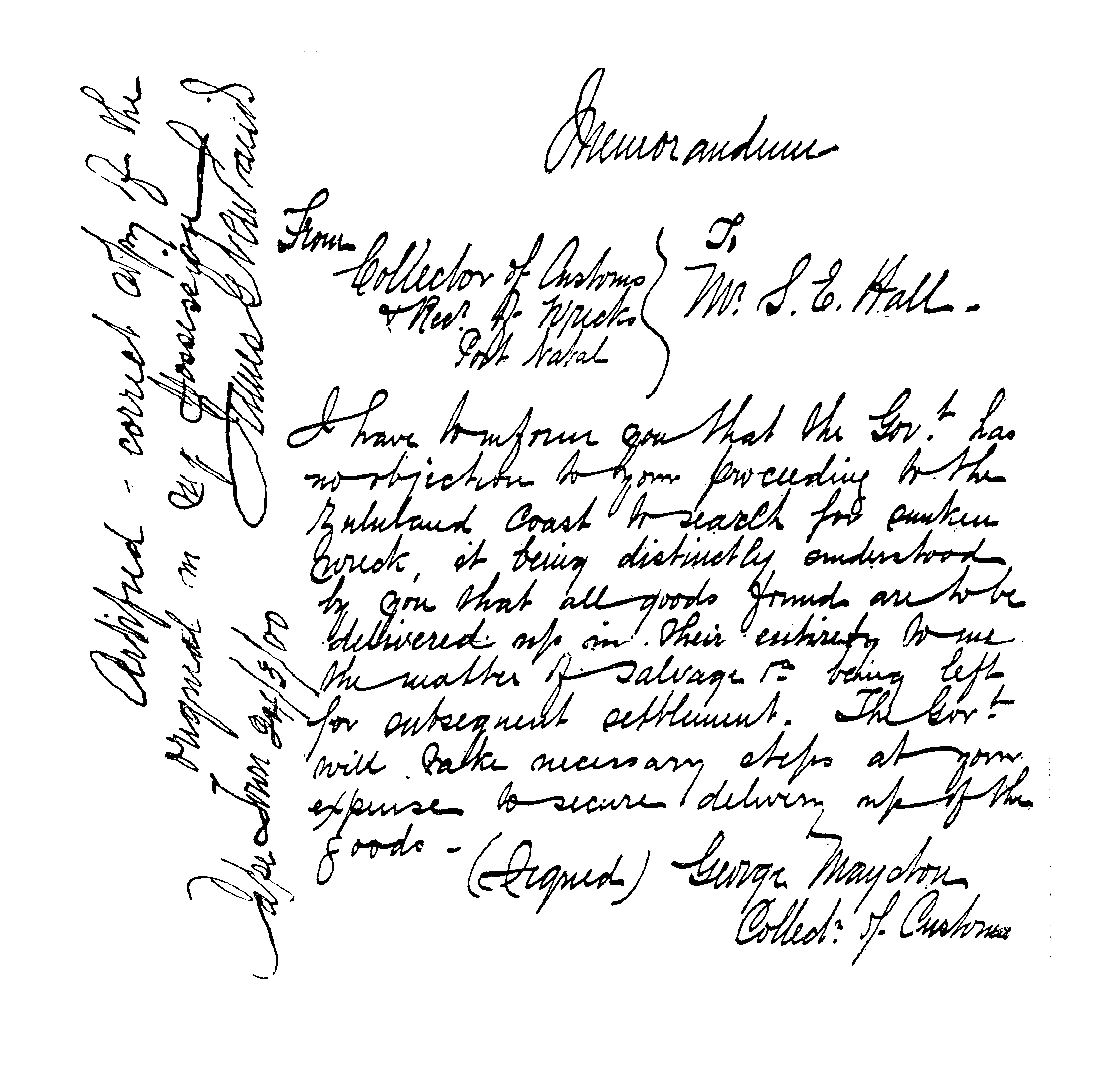 Memorandum
From
Collector of Customs
& Recr. of Wrecks
Port Natal
To
Mr. S. E. Hall.
I have to inform you that the Govt. has
no objection to your proceeding to the
Zululand Coast to search for sunken
wreck, it being distinctly understood
by you that all goods found are to be
delivered up in their entirety to me
the matter of salvage being left
for subsequent settlement. The Govt.
will take necessary steps at your
expense to secure delivery up of the
goods -
(Signed) George Maydon
Collectr. of Customs
Certified - correct copy of the
original in my possession
James
Cape Town /3/00